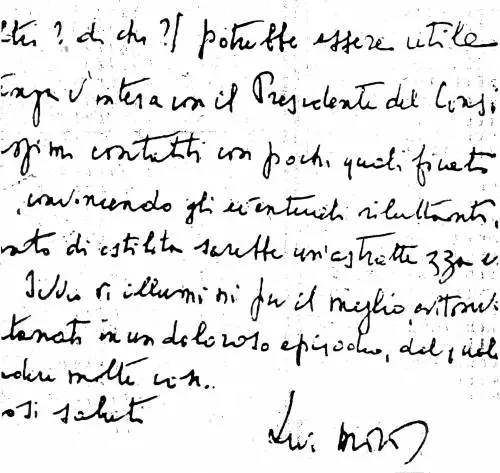 ti? di che?) potrebbe essere utile
tempo d'intesa con il Presidente del Consi
opini contatti con pochi qualificati
, convincendo gli eventuali riluttanti.
mento di ostilità sarebbe un'astrattezza e
Iddio vi illumini per il meglio, evitando
tanati in un doloroso episodio, dal quale
dere molte cose.
osi saluti
Moro